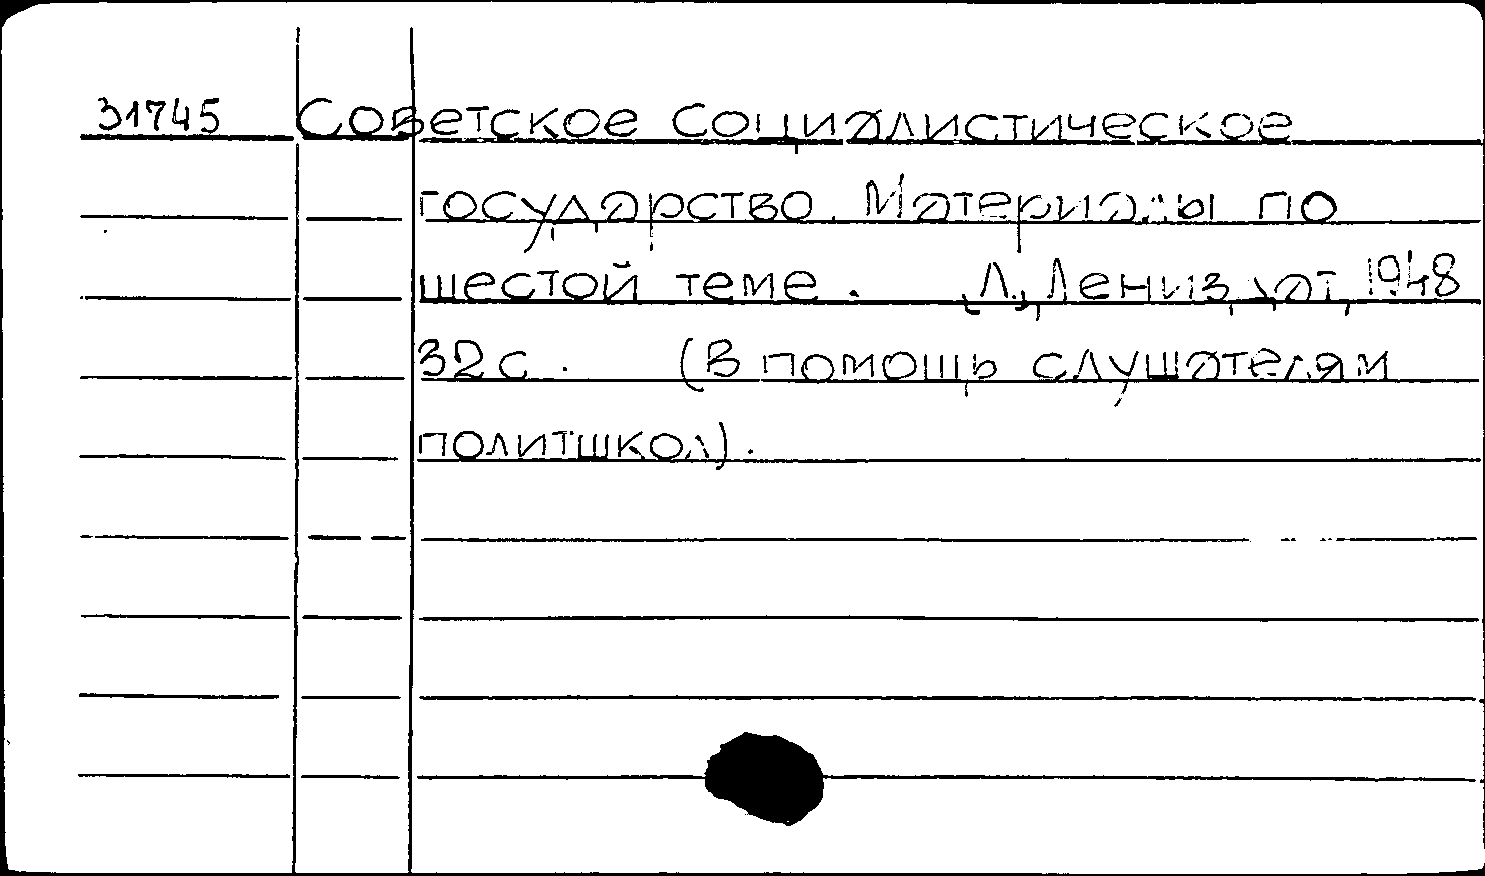 31745 Советское Социалистическое
государство. Материалы по
шестой теме. Л., Лениздат, 1948
32 с. (В помощь слушателям
политшкол).